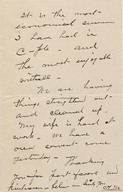 It is the most
economical summer
I have had in
C-ple - and
the most enjoyable
withall -
We are having
things straightened out -
and cleaned up
My wife is hard at
work - We have a
even
come
yesterday - Thanking
you for past favors and
kindnesses